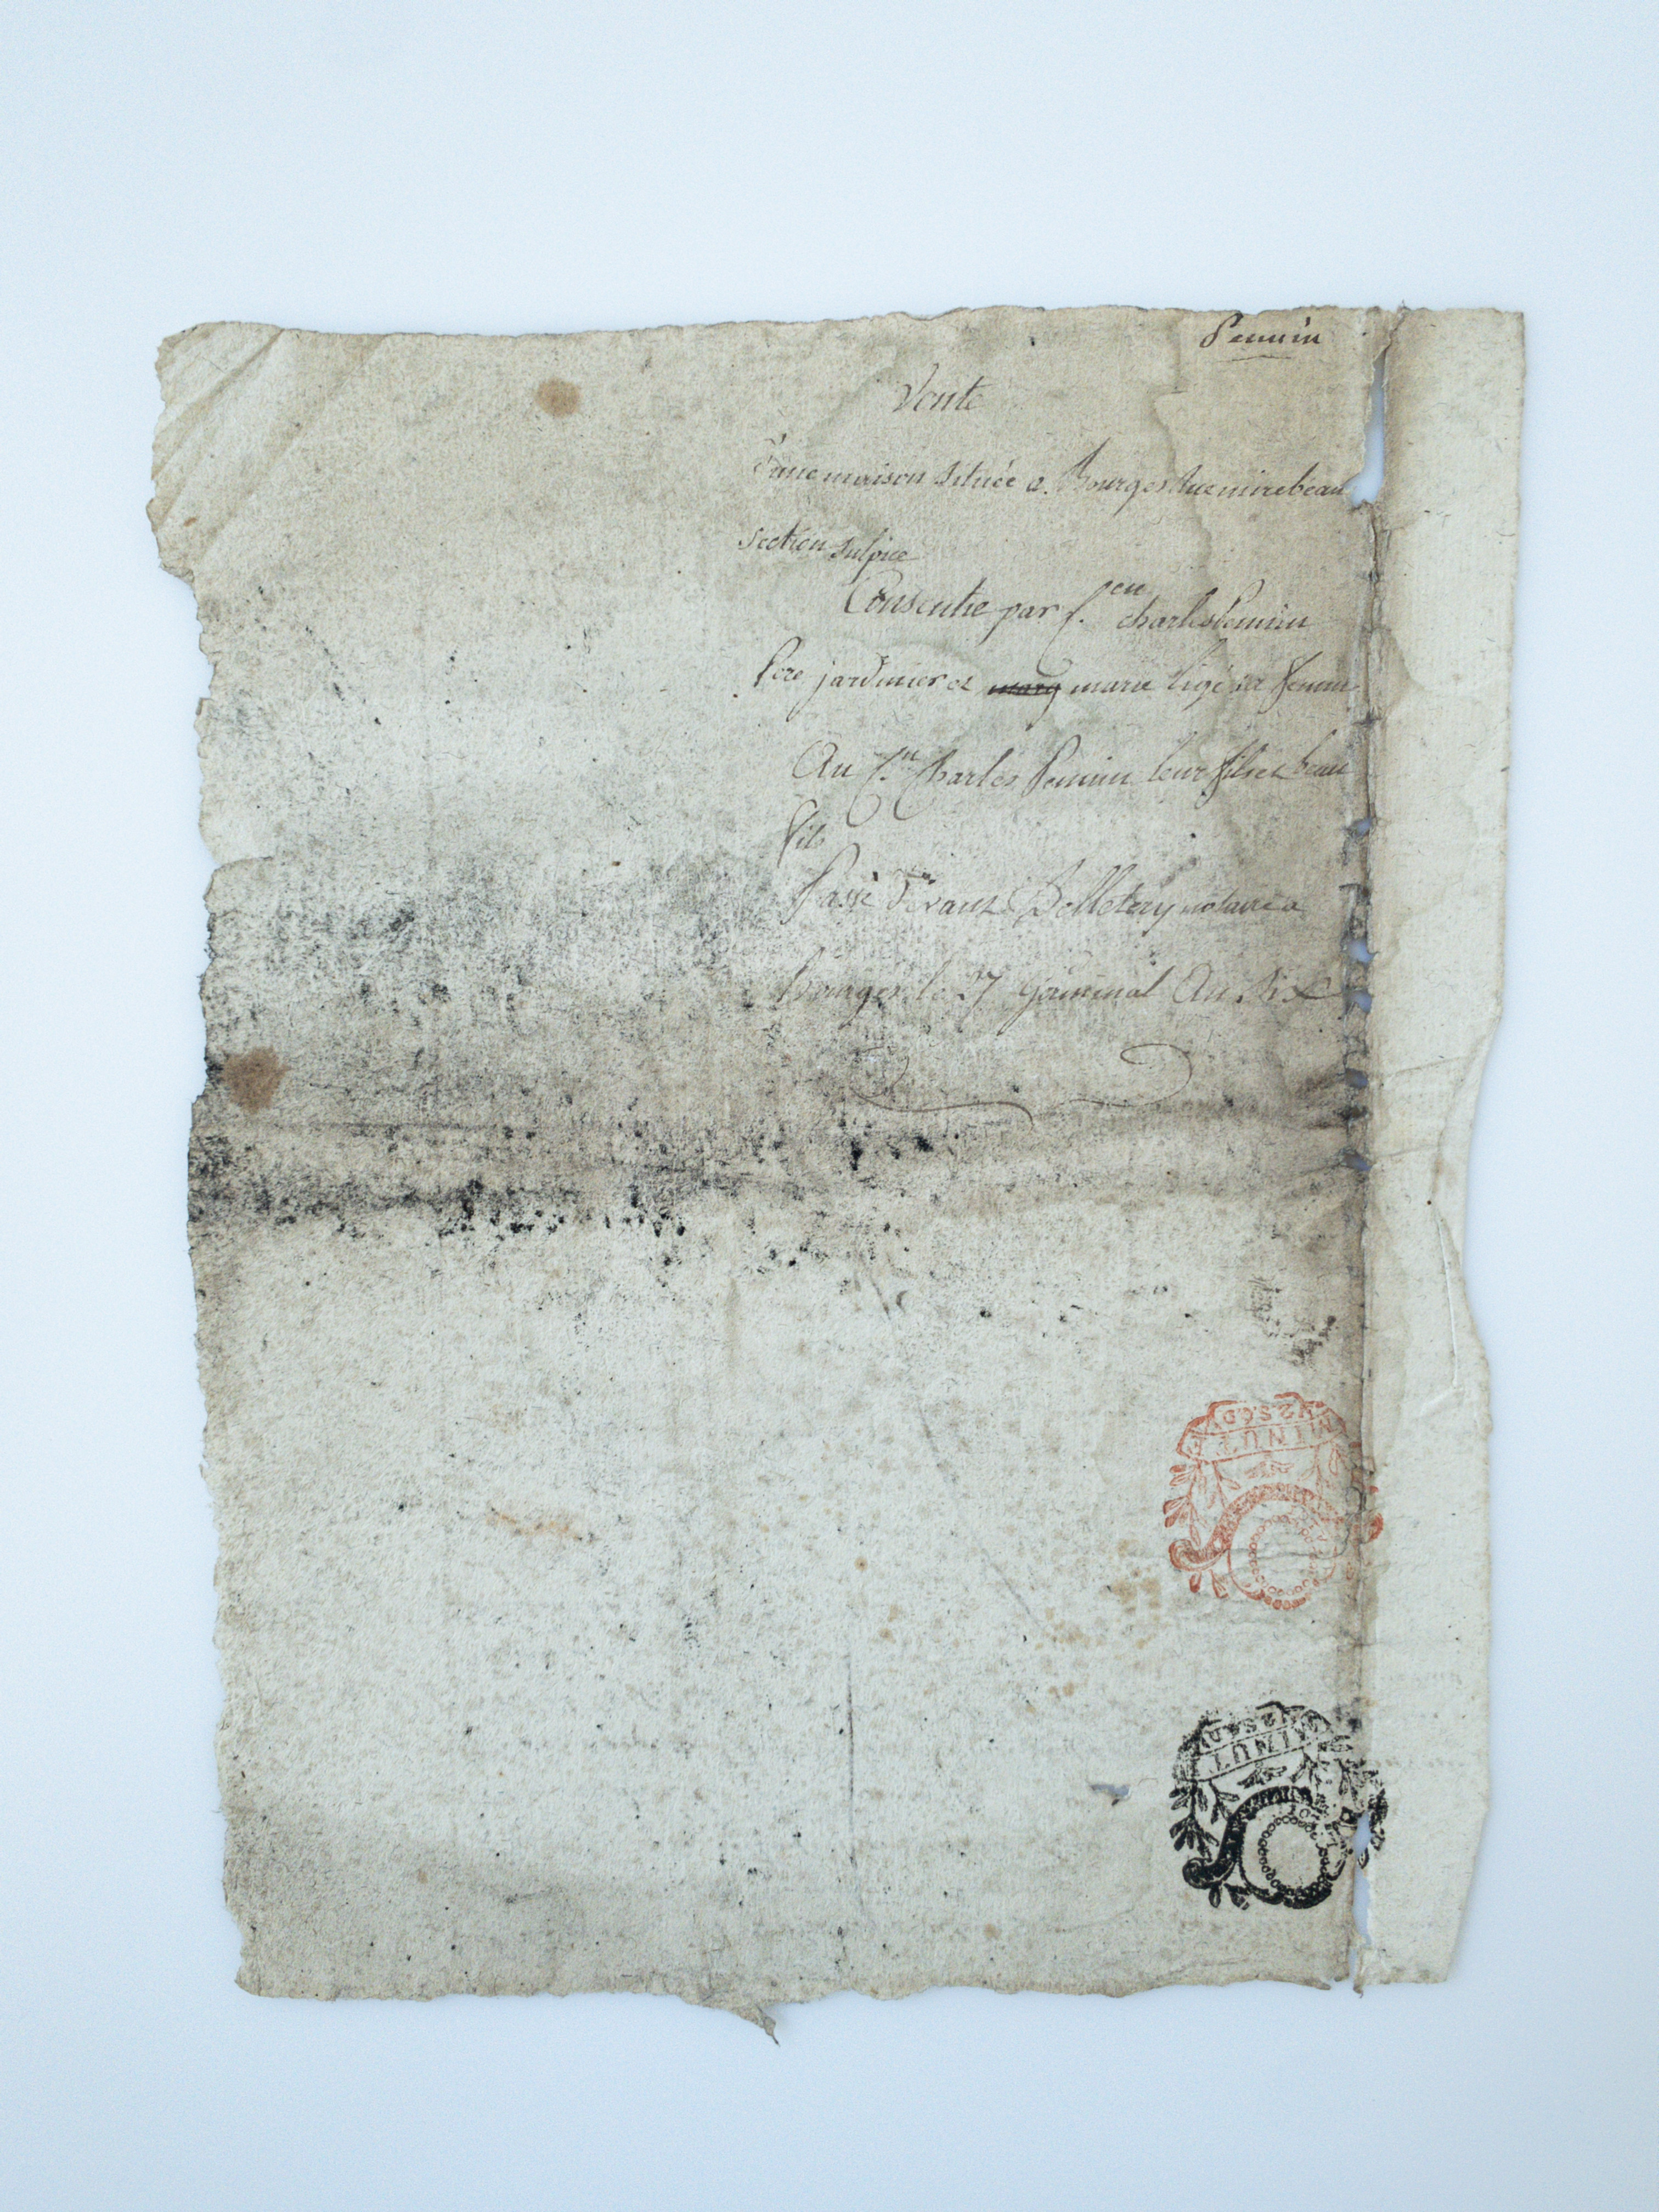 Pemmin
Vente
d'une maison située a Bourges Rue mirebeau
section sulpice
Consentie par C.en charles Pemmin
Pere jardinier et marg marie ligé sa femme
Au C.en Charles Pemmin leur fils et beau
fils
Passé devant Delletery notaire a
Bourges le 27 Germinal An six
MINUTE
MINUTE